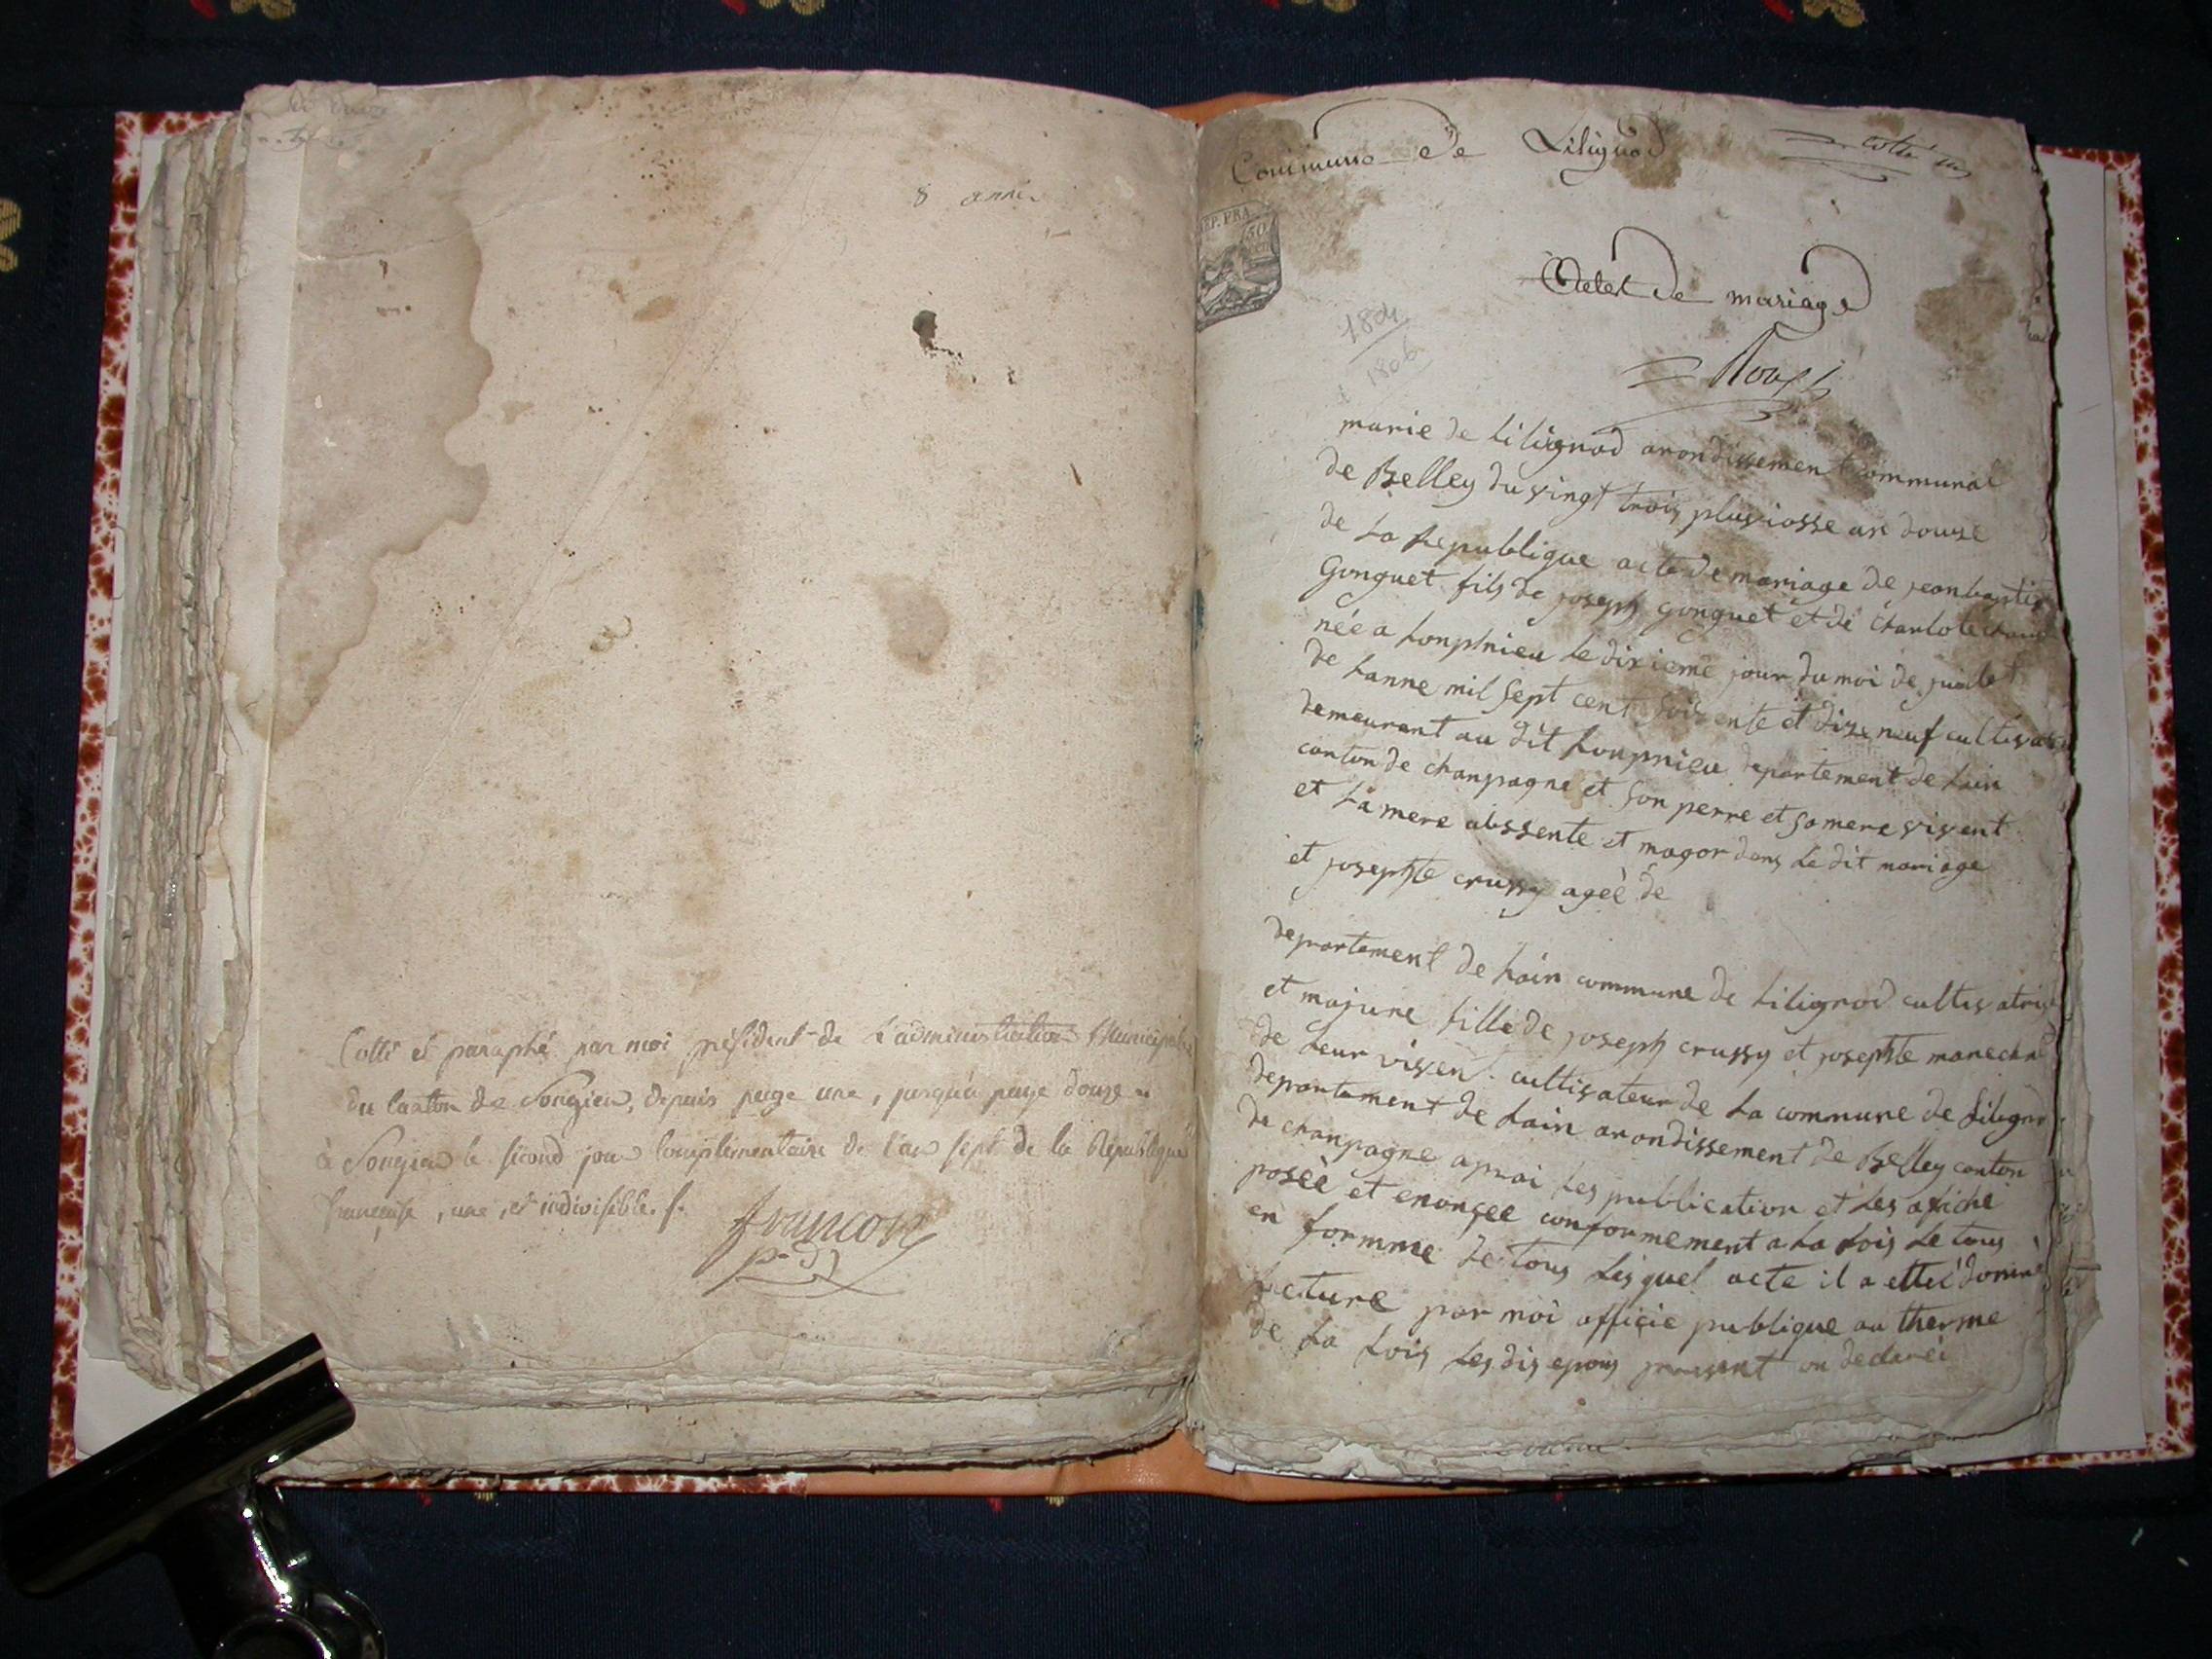 8 année
Cotté et paraphé par moi président de L'administration Municipale
du Canton de Songieu, depuis page une, jusqu'a page douze
à Songieu le second jour Complémentaire de l'an sept de la République
française, une, et indivisible.
francon
Commune de Lilignod
cotté
REP. FRA
50
Actes de mariage
1804
1806
marie de Lilignod arondissement communal
de Belley du vingt trois pluviosse an douze
de La Republique acte de mariage de jean baptis
Gonguet fils de joseph gonguet et de Charlote
née a Lonphieu Le dixieme jour du moi de juilet
de Lanne mil sept cent soixente et dize neuf cultivate
demeurant au dit Loupnieu departement de Lain
canton de chanpagne et son perre et sa mere vivent
et La mere abssente et magor dans Le dit mariage
et josephte crussy ageé de
departement de Lain commune de Lilignod cultivatris
et majure fille de joseph crussy et josephte marechal
de Leur viven cultivateur de La commune de Lilignod
departement de Lain arondissement de Belley canton
de chanpagne aprai Les publication et Les afiche
poseè et enonçee conformement a La Lois Le tous
en formme de tous Lesquel acte il a etteé donné
Lecture par moi afficie publique au therme
de La Lois Les dis epous present on declareé